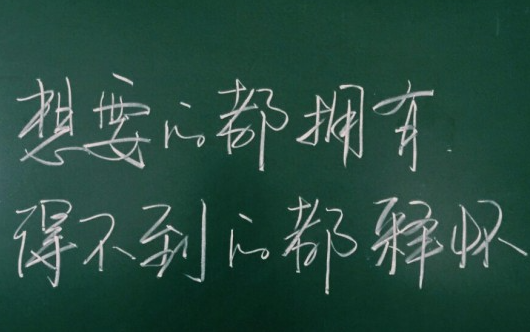 想要的都拥有.
得不到的都释怀